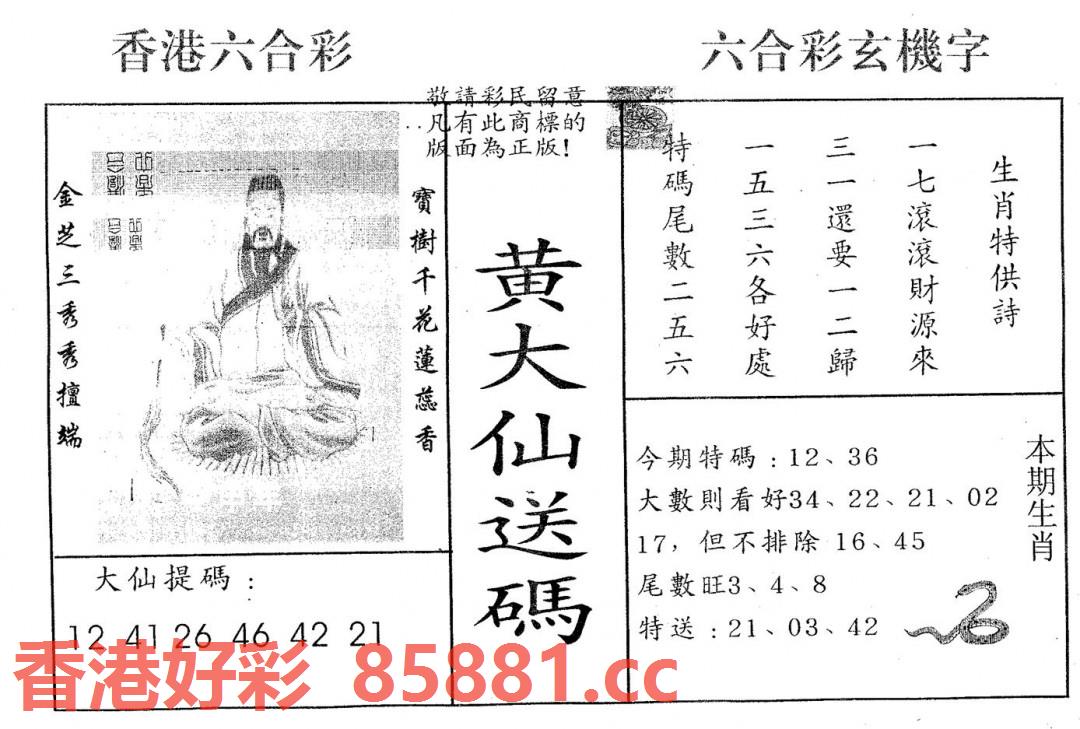 香港六合彩
六合彩玄機字
敬請彩民留意
凡有此商標的
版面為正版!
寶樹千花蓮蕊香
金芝三秀秀擅端
黄大仙送碼
生肖特供詩
一七滾滾財源來
三一還要一二歸
一五三六各好處
特碼尾數二五六
本期生肖
今期特碼:12、36
大數則看好34、22、21、02
17,但不排除 16、45
尾數旺3、4、8
特送:21、03、42
大仙提碼:
12 41 26 46 42 21
香港好彩 85881.cc